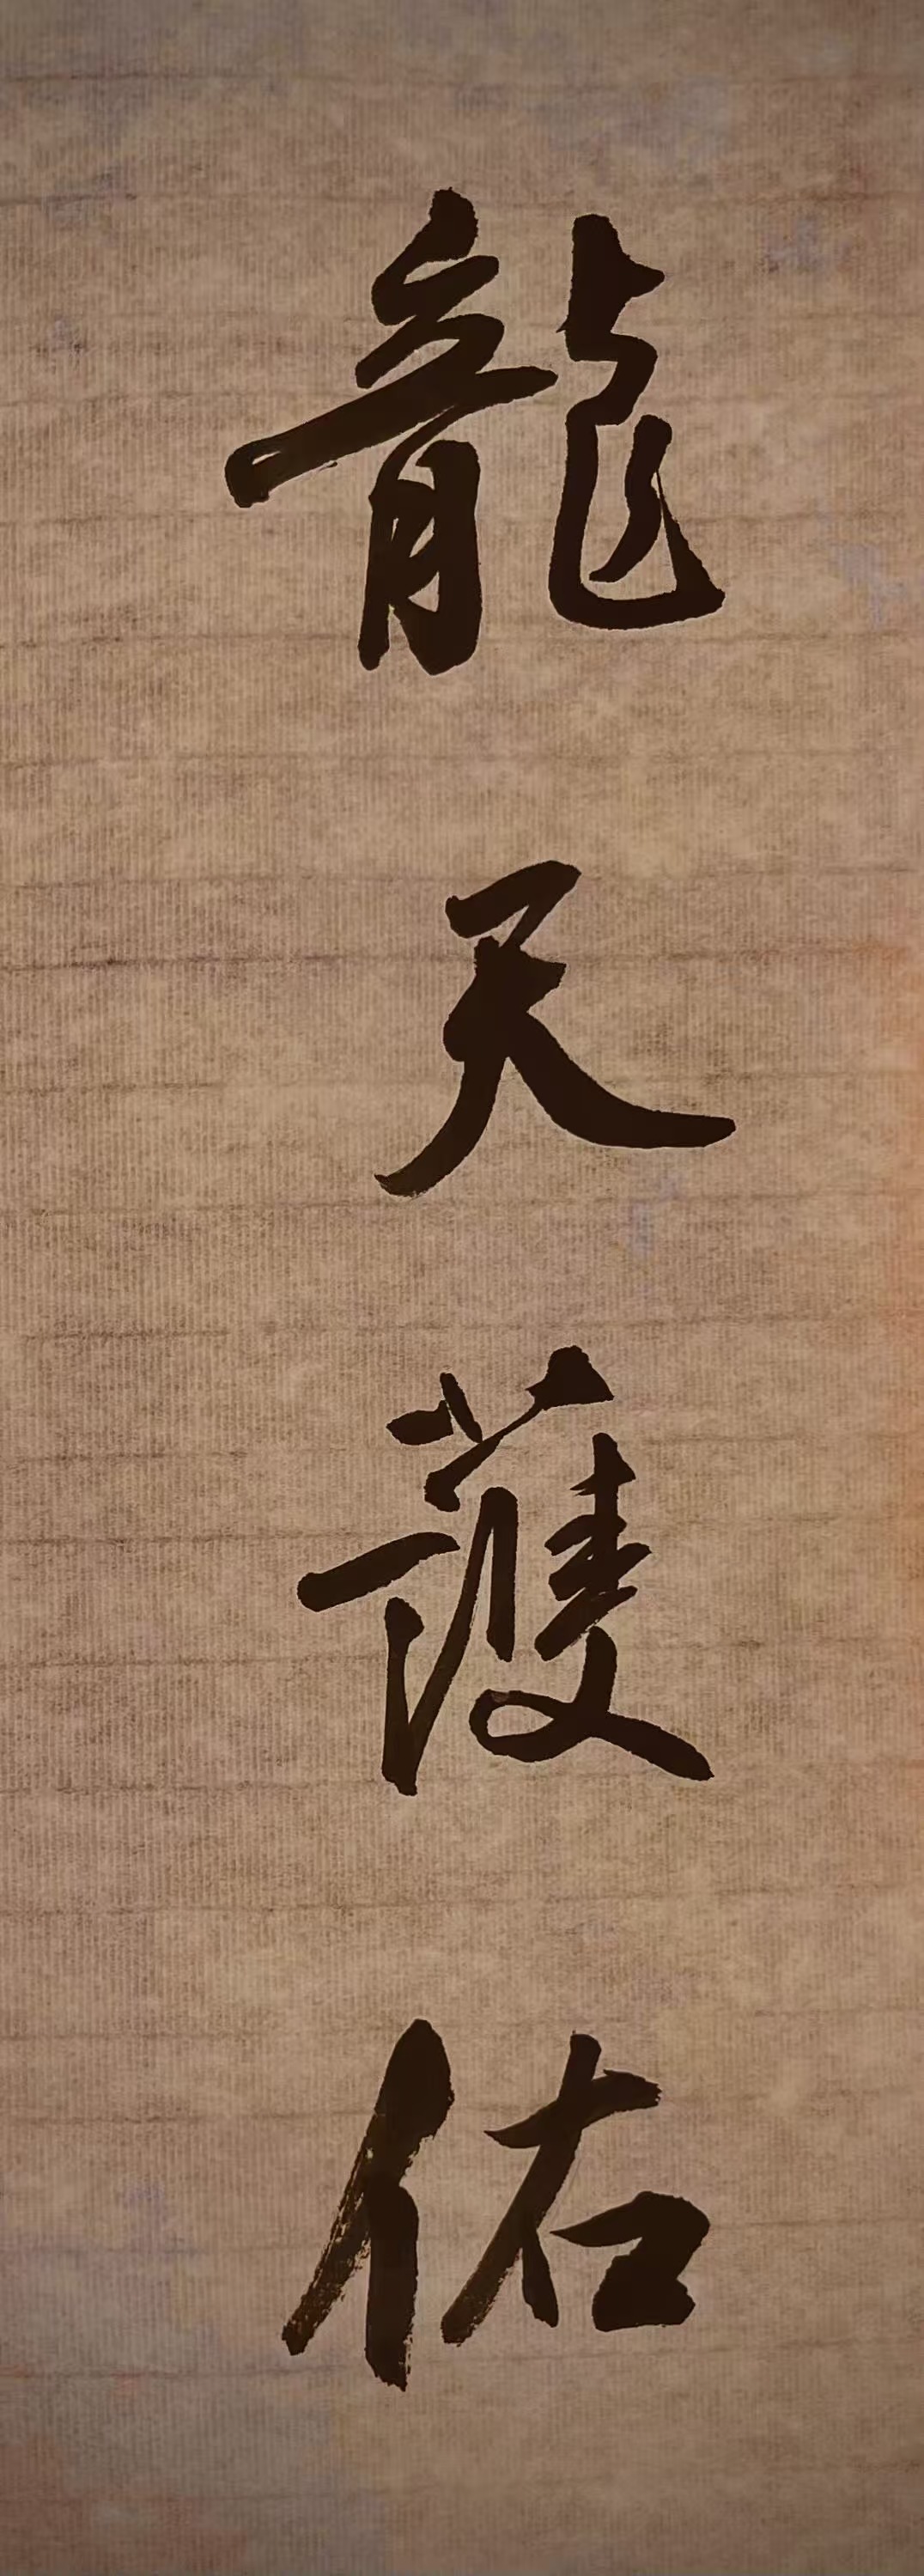 龍天護佑